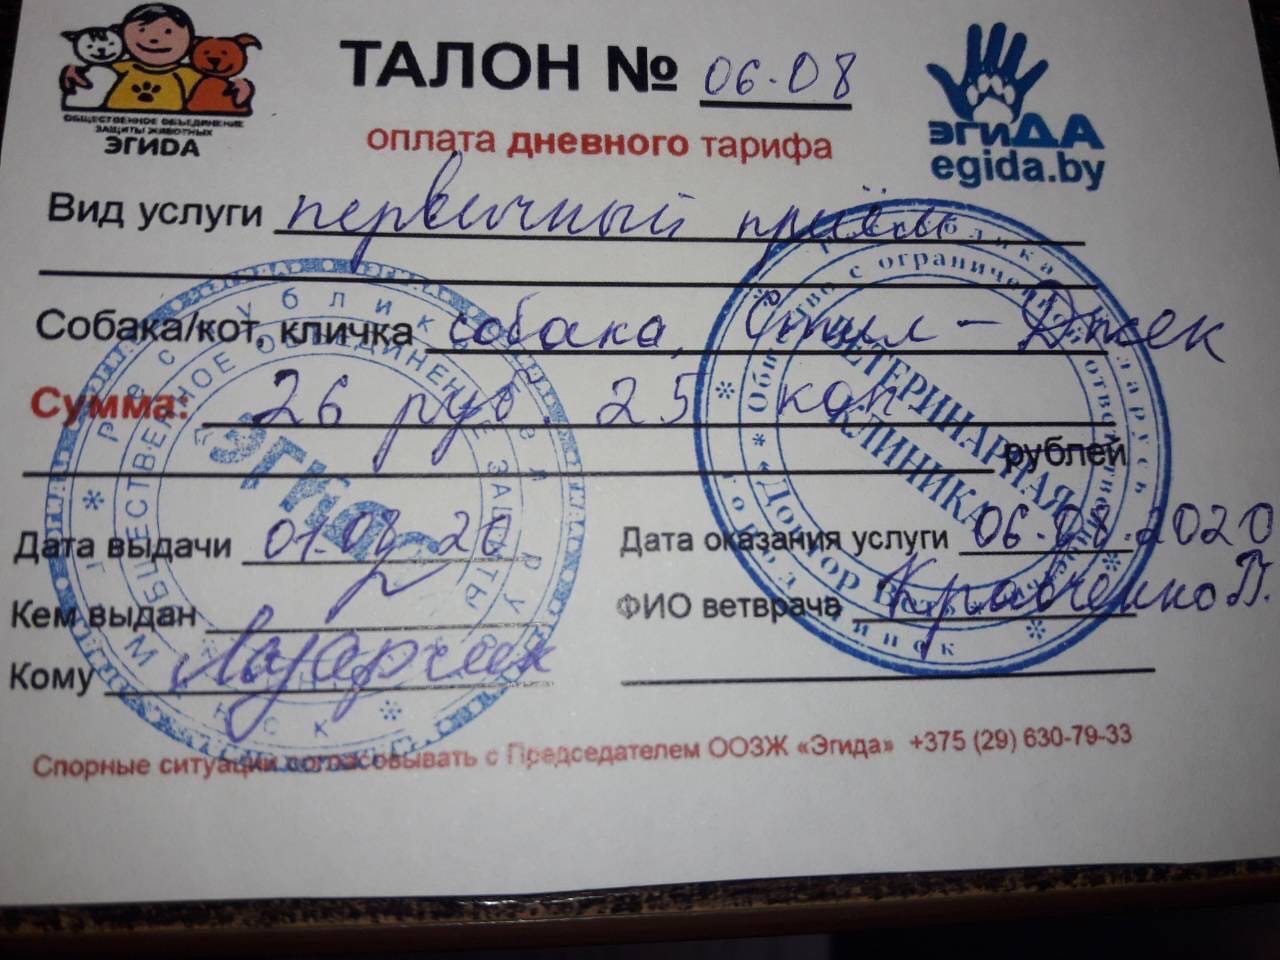 ОБЩЕСТВЕННОЕ ОБЪЕДИНЕНИЕ
ЗАЩИТЫ ЖИВОТНЫХ
ЭГИДА
ТАЛОН № 06.08
оплата дневного тарифа
эгиДА
egida.by
Вид услуги первичный приём
Собака/кот, кличка собака, Стил-Джек
Сумма: 26 руб. 25 коп
рублей
Дата выдачи 01.08.20
Дата оказания услуги 06.08.2020
Кем выдан
ФИО ветврача Кравченко В.
Кому
Спорные ситуации согласовывать с Председателем ООЗЖ «Эгида» +375 (29) 630-79-33
Республика Беларусь
ОБЩЕСТВЕННОЕ ОБЪЕДИНЕНИЕ ЗАЩИТЫ
«ЭГИДА»
Республика Беларусь
ВЕТЕРИНАРНАЯ
КЛИНИКА